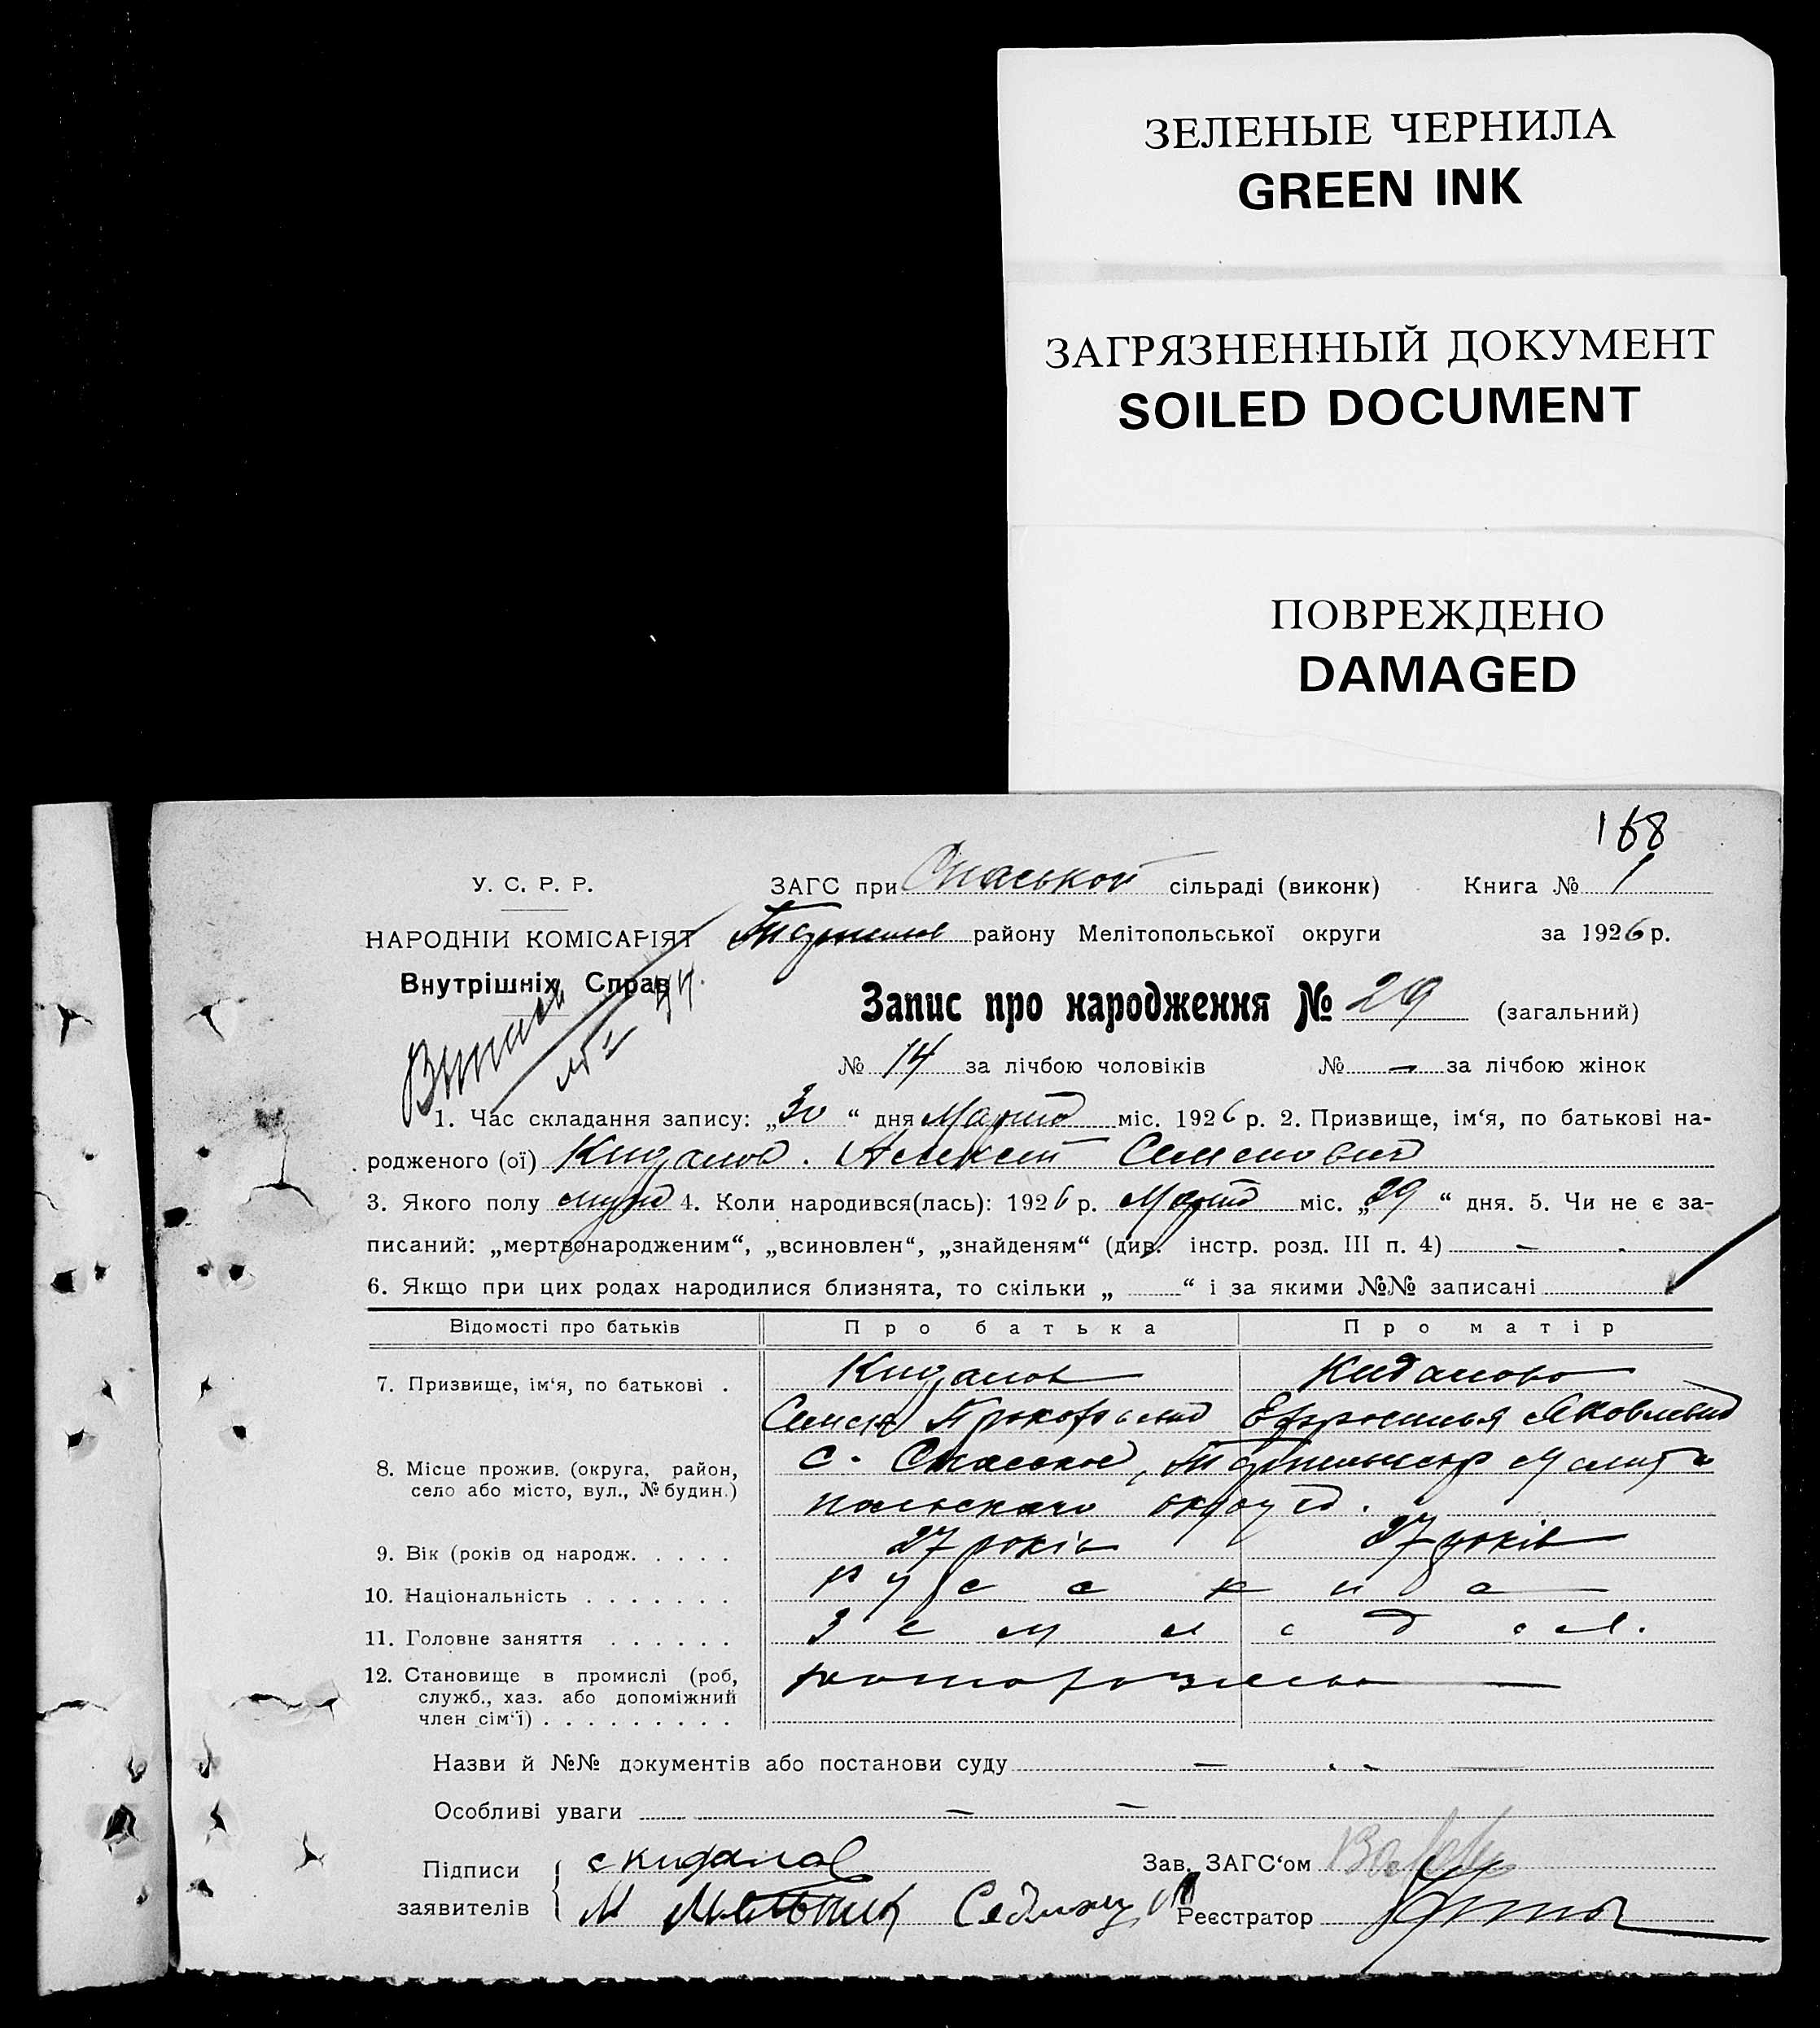 ЗЕЛЕНЫЕ ЧЕРНИЛА
GREEN INK
ЗАГРЯЗНЕННЫЙ ДОКУМЕНТ
SOILED DOCUMENT
ПОВРЕЖДЕНО
DAMAGED
168
У. С. Р. Р. ЗАГС при Спаській сільраді (виконк) Книга № 1
НАРОДНІЙ КОМІСАРІЯТ району Мелітопольської округи за 1926 р.
Внутрішніх Справ
Запис про народження № 29 (загальний)
№ 14 за лічбою чоловіків № — за лічбою жінок
1. Час складання запису: „30“ дня Марта міс. 1926 р. 2. Призвище, ім‘я, по батькові на-
родженого (ої) Кидалов. Алексей Семенович
3. Якого полу муж 4. Коли народився(лась): 1926 р. Марта міс. „29“ дня. 5. Чи не є за-
писаний: „мертвонародженим“, „всиновлен“, „знайденям“ (див. інстр. розд. III п. 4) —
6. Якщо при цих родах народилися близнята, то скільки „ “ і за якими №№ записані
Відомості про батьків Про батька Про матір
7. Призвище, ім‘я, по батькові . Кидалов Кидалова
Семен Ефросинья Яковлевна
8. Місце прожив. (округа, район, с. Спасское,
село або місто, вул., № будин.) польского округа.
9. Вік (років од народж. . . . . 27 років 27 років
10. Національність . . . . . . .
11. Головне заняття . . . . . . Земледел.
12. Становище в промислі (роб,
служб., хаз. або допоміжний
член сім‘ї) . . . . . . . . .
Назви й №№ документів або постанови суду —
Особливі уваги — —
Підписи с Кидалов Зав. ЗАГС‘ом
заявителів М Мельник Реєстратор